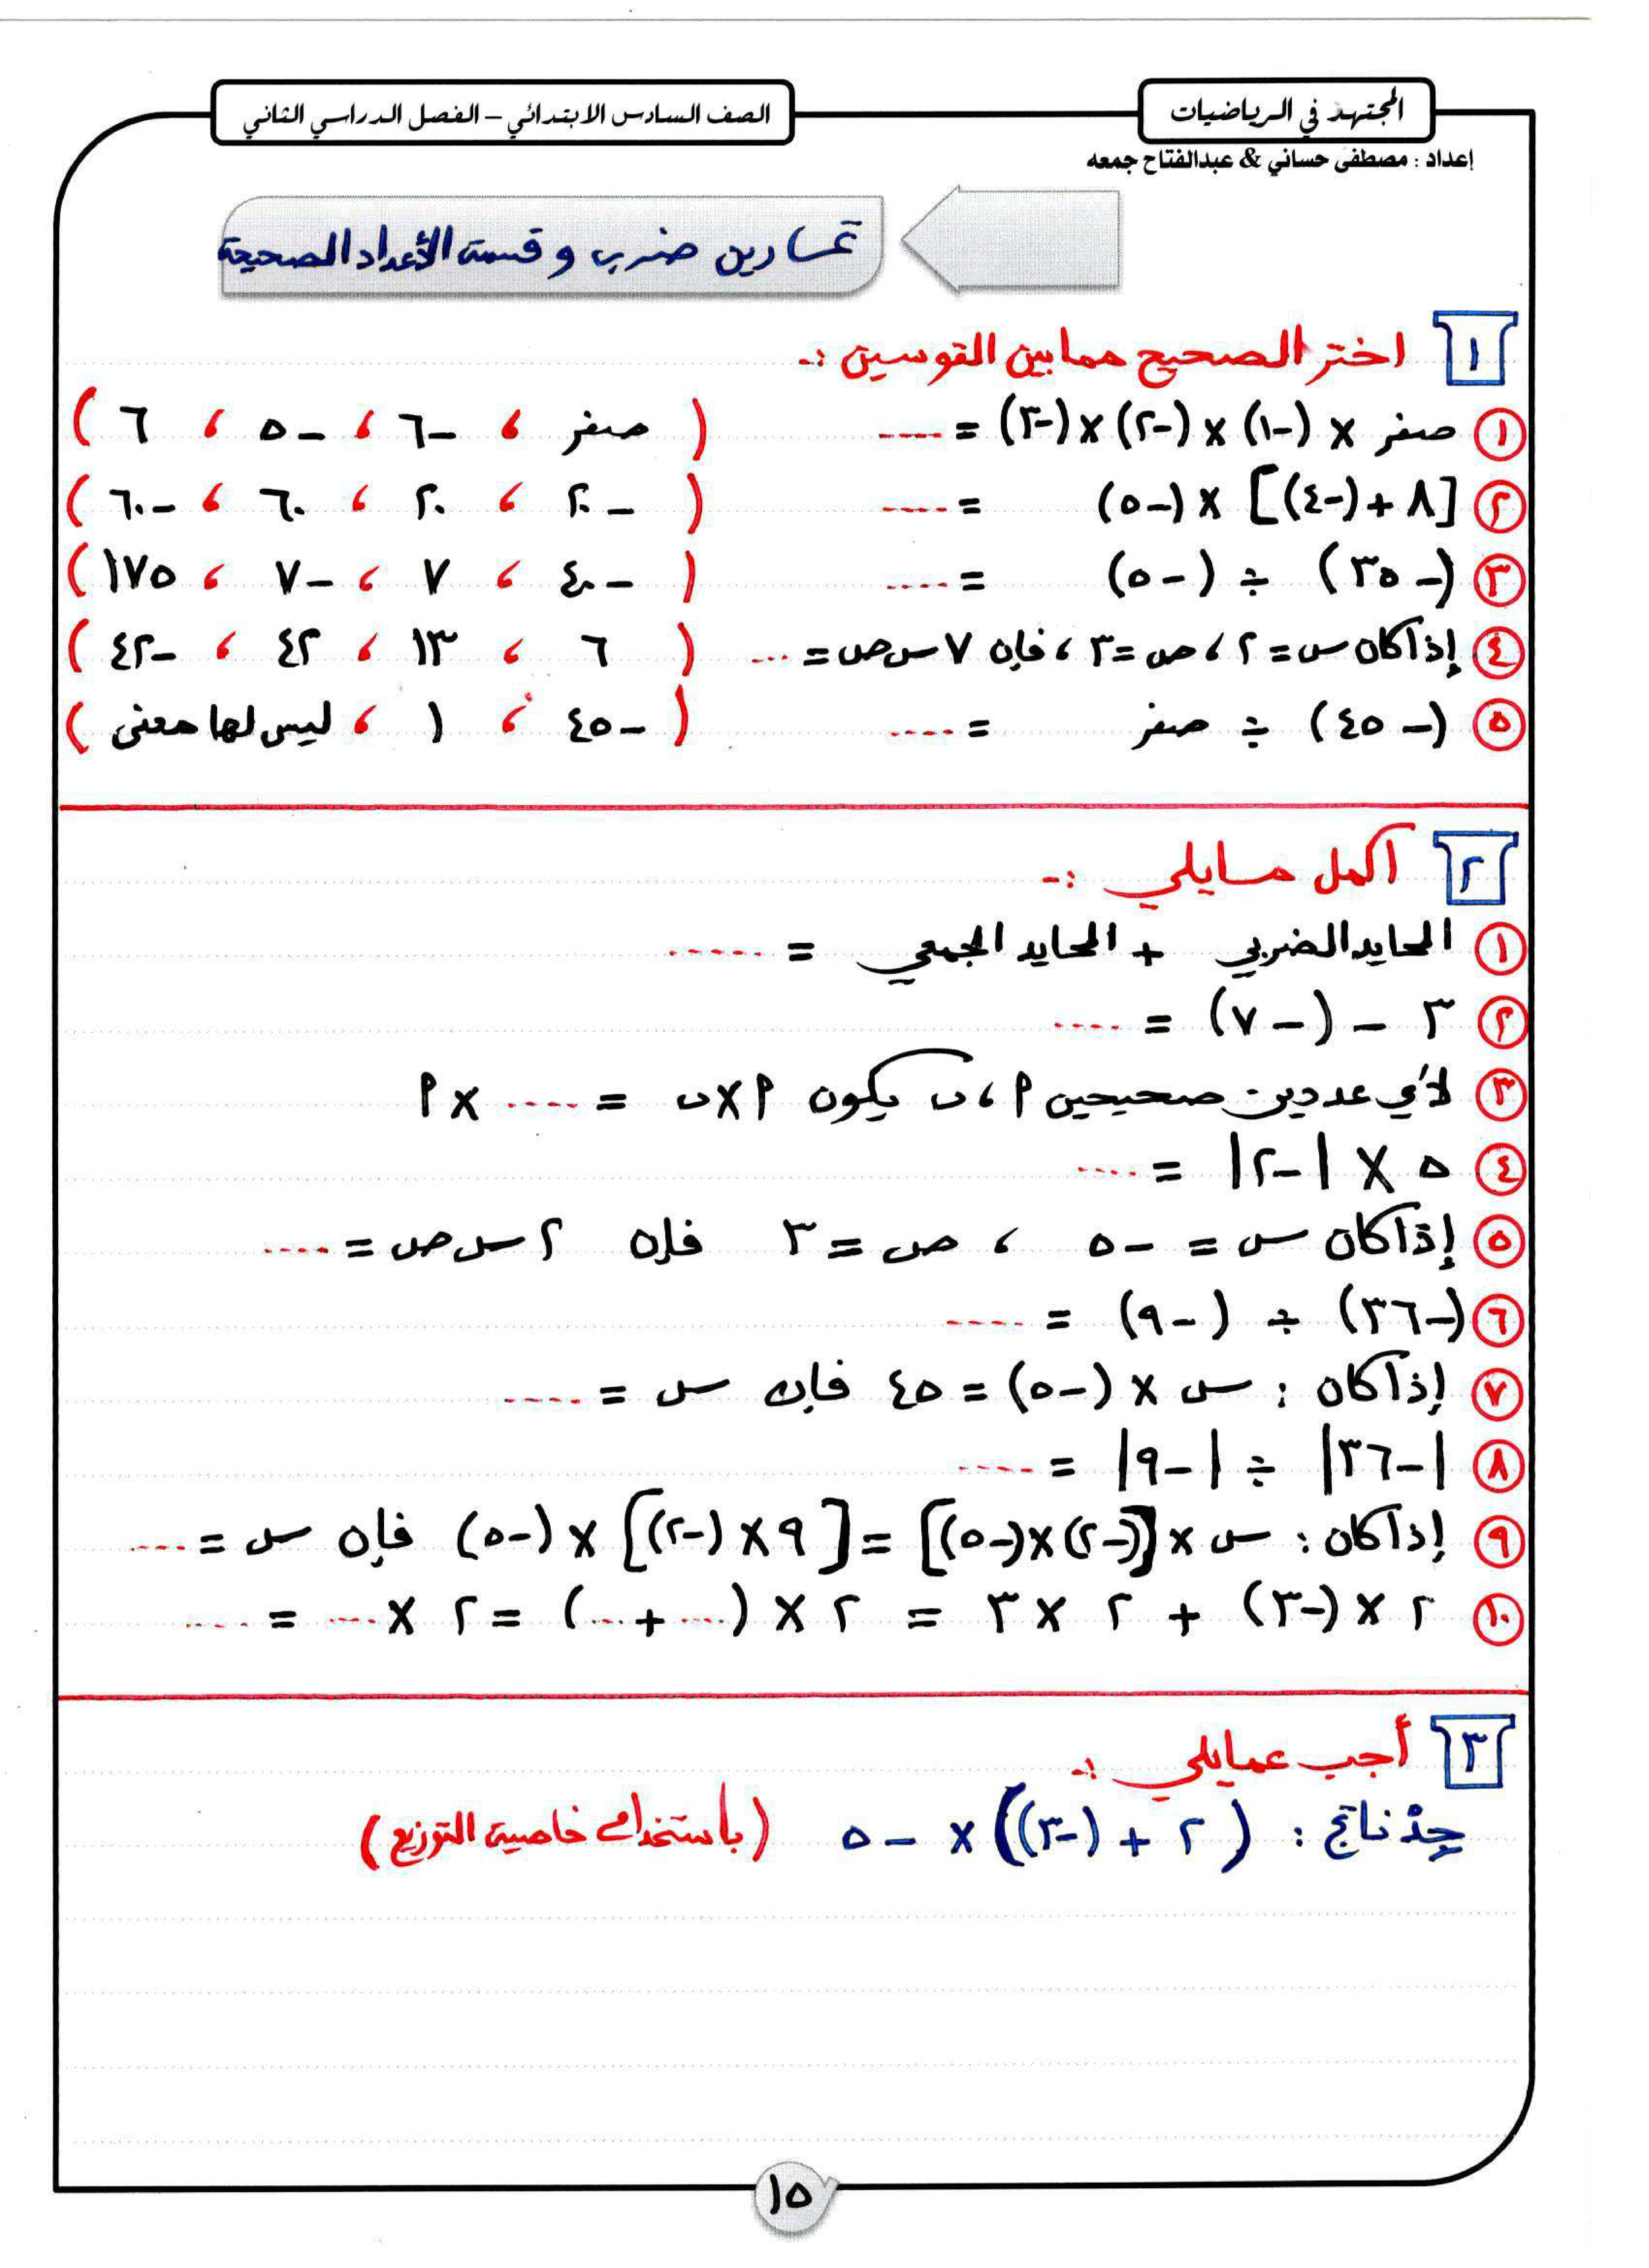 المجتهد في الرياضيات
الصف السادس الابتدائي – الفصل الدراسي الثاني
إعداد : مصطفى حساني & عبدالفتاح جمعه
تمارين ضرب وقسمة الأعداد الصحيحة
١ اختر الصحيح مما بين القوسين :-
١ صفر × (-١) × (-٢) × (-٣) = ---- ( صفر ، -٦ ، -٥ ، ٦ )
٢ [٨ + (-٤)] × (-٥) = ---- ( -٢٠ ، ٢٠ ، ٦٠ ، -٦٠ )
٣ (-٣٥) ÷ (-٥) = ---- ( -٤٠ ، ٧ ، -٧ ، ١٧٥ )
٤ إذا كان س = ٢ ، ص = ٣ ، فإن ٧ س ص = --- ( ٦ ، ١٣ ، ٤٢ ، -٤٢ )
٥ (-٤٥) ÷ صفر = ---- ( -٤٥ ، ، ١ ، ليس لها معنى )
٢ أكمل مايلي :-
١ المحايد الضربي + المحايد الجمعي = -----
٢ ٣ - (-٧) = ----
٣ لأي عددين صحيحين م ، ب يكون م × ب = ---- × م
٤ ٥ × |-٢| = ----
٥ إذا كان س = -٥ ، ص = ٣ فإن ٢ س ص = ----
٦ (-٣٦) ÷ (-٩) = ----
٧ إذا كان : س × (-٥) = ٤٥ فإن س = ----
٨ |-٣٦| ÷ |-٩| = ----
٩ إذا كان : س × [(-٢) × (-٥)] = [٩ × (-٢)] × (-٥) فإن س = ----
١٠ ٢ × (-٣) + ٢ × ٣ = ٢ × (---- + ---) = ٢ × ---- = ----
٣ أجب عمايلي :-
جد ناتج : (٢ + (-٣)) × -٥ (بأستخدام خاصية التوزيع)
١٥